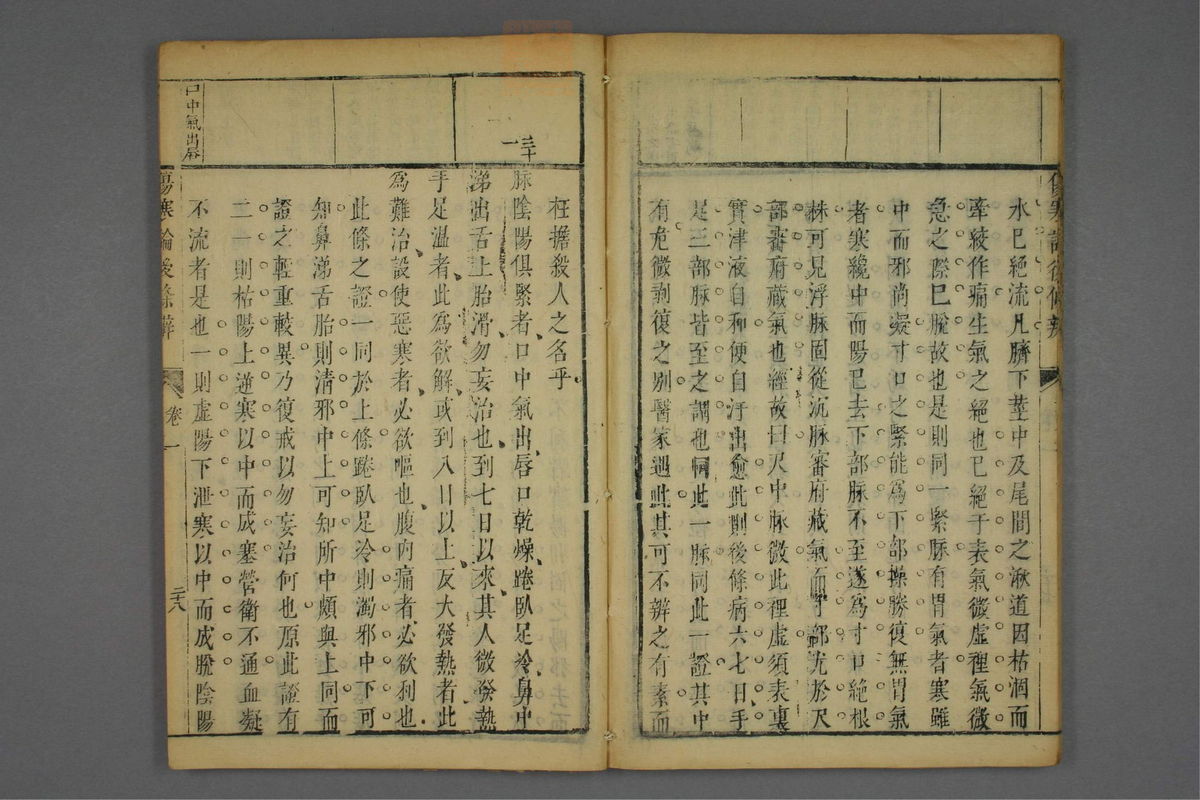 水已絶流凡臍下莖中及尾閭之湫道因枯涸而
牽絞作痛生氣之絶也已絶于表氣微虛裡氣微
急之際已脫故也是則同一緊脉有胃氣者寒雖
中而邪尚凝寸口之緊能為下部操勝復無胃氣
者寒纔中而陽已去下部脉不至遂為寸口絶根
株可見浮脉固從沉脉審府藏氣而寸部尤於尺
部審府藏氣也經故曰尺中脉微此裡虛須表裏
實津液自和便自汗出愈此則後條病六七日手
足三部脉皆至之謂也同此一脉同此一證其中
有危微剥復之别醫家遇此其可不辨之有素而
三十一
枉擔殺人之名乎
脉陰陽俱緊者口中氣出唇口乾燥踡臥足冷鼻中
涕出舌上胎滑勿妄治也到七日以來其人微發熱
手足温者此為欲解或到八日以上反大發熱者此
為難治設使惡寒者必欲嘔也腹内痛者必欲利也
此條之證一同於上條踡臥足冷則濁邪中下可
知鼻涕舌胎則清邪中上可知所中頗與上同而
證之輕重較異乃復戒以勿妄治何也原此證有
二一則枯陽上逆寒以中而成塞營衛不通血凝
不流者是也一則虛陽下泄寒以中而成脫陰陽
口中氣出唇
傷寒論後條辨
卷一
二十八